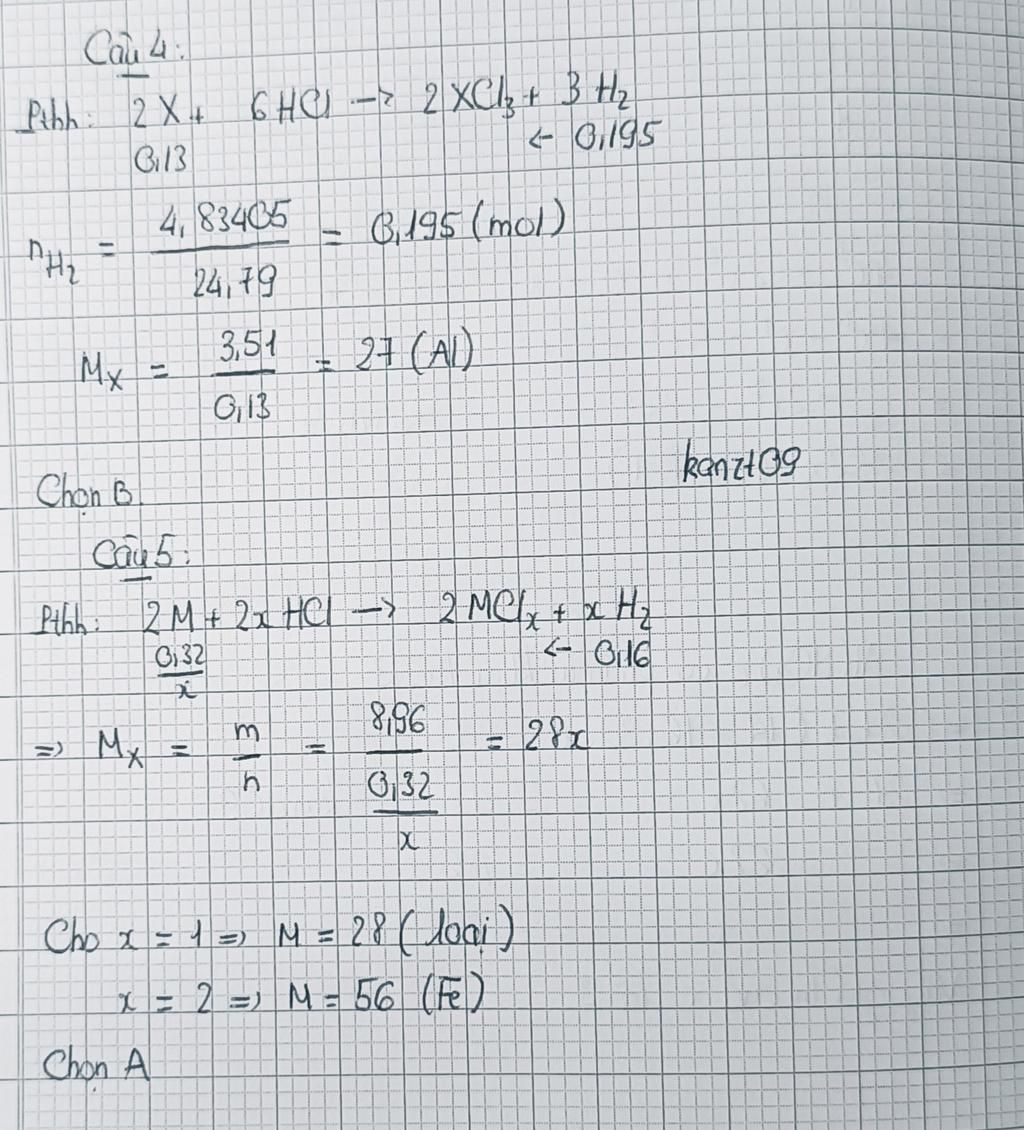 Câu 4:
Pthh: 2X + 6HCl → 2XCl₃ + 3H₂
0,13 ← 0,195
nH₂ = 4,83405 / 24,79 = 0,195 (mol)
Mx = 3,51 / 0,13 = 27 (Al)
kanzt09
Chọn B.
Câu 5:
Pthh: 2M + 2xHCl → 2MClₓ + xH₂
0,32/x ← 0,16
=> Mx = m/n = 8,96 / (0,32/x) = 28x
Cho x = 1 => M = 28 (loại)
x = 2 => M = 56 (Fe)
Chọn A